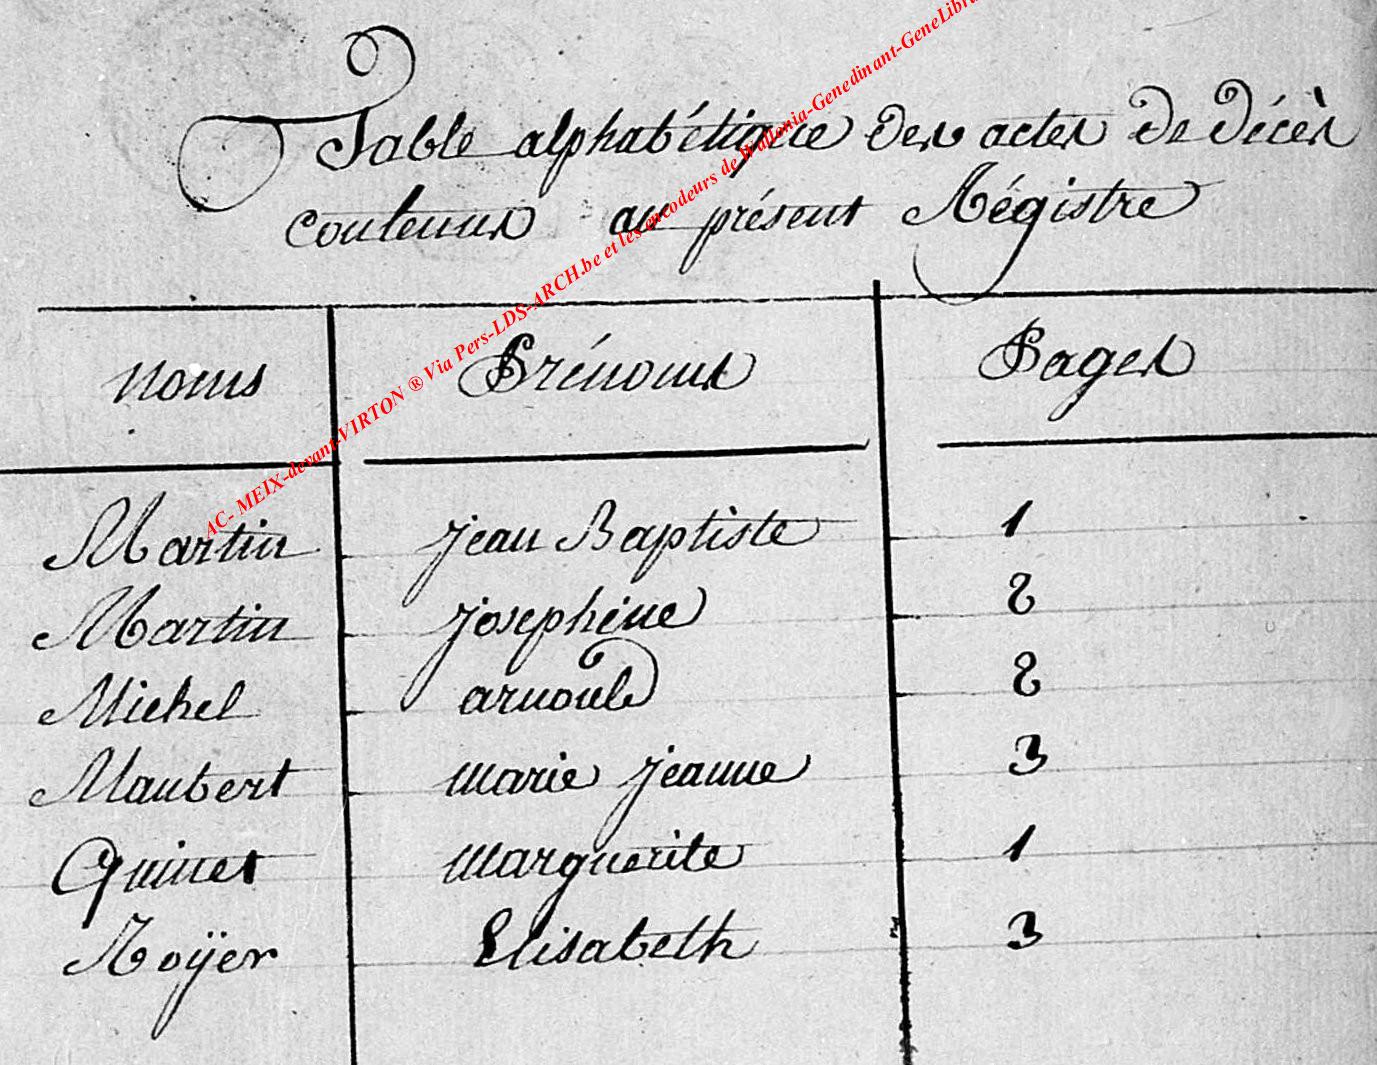 Table alphabétique des actes de décès
contenus au présent Régistre
noms Prénoms Pages
Martin jean Baptiste 1
Martin josephine 2
Michel arnould 2
Maubert marie jeanne 3
Quinet marguerite 1
Roÿer Elisabeth 3
AC- MEIX-devant-VIRTON ® Via Pers-LDS-ARCH.be et les encodeurs de Wallonia-Genedinant-GeneLibra